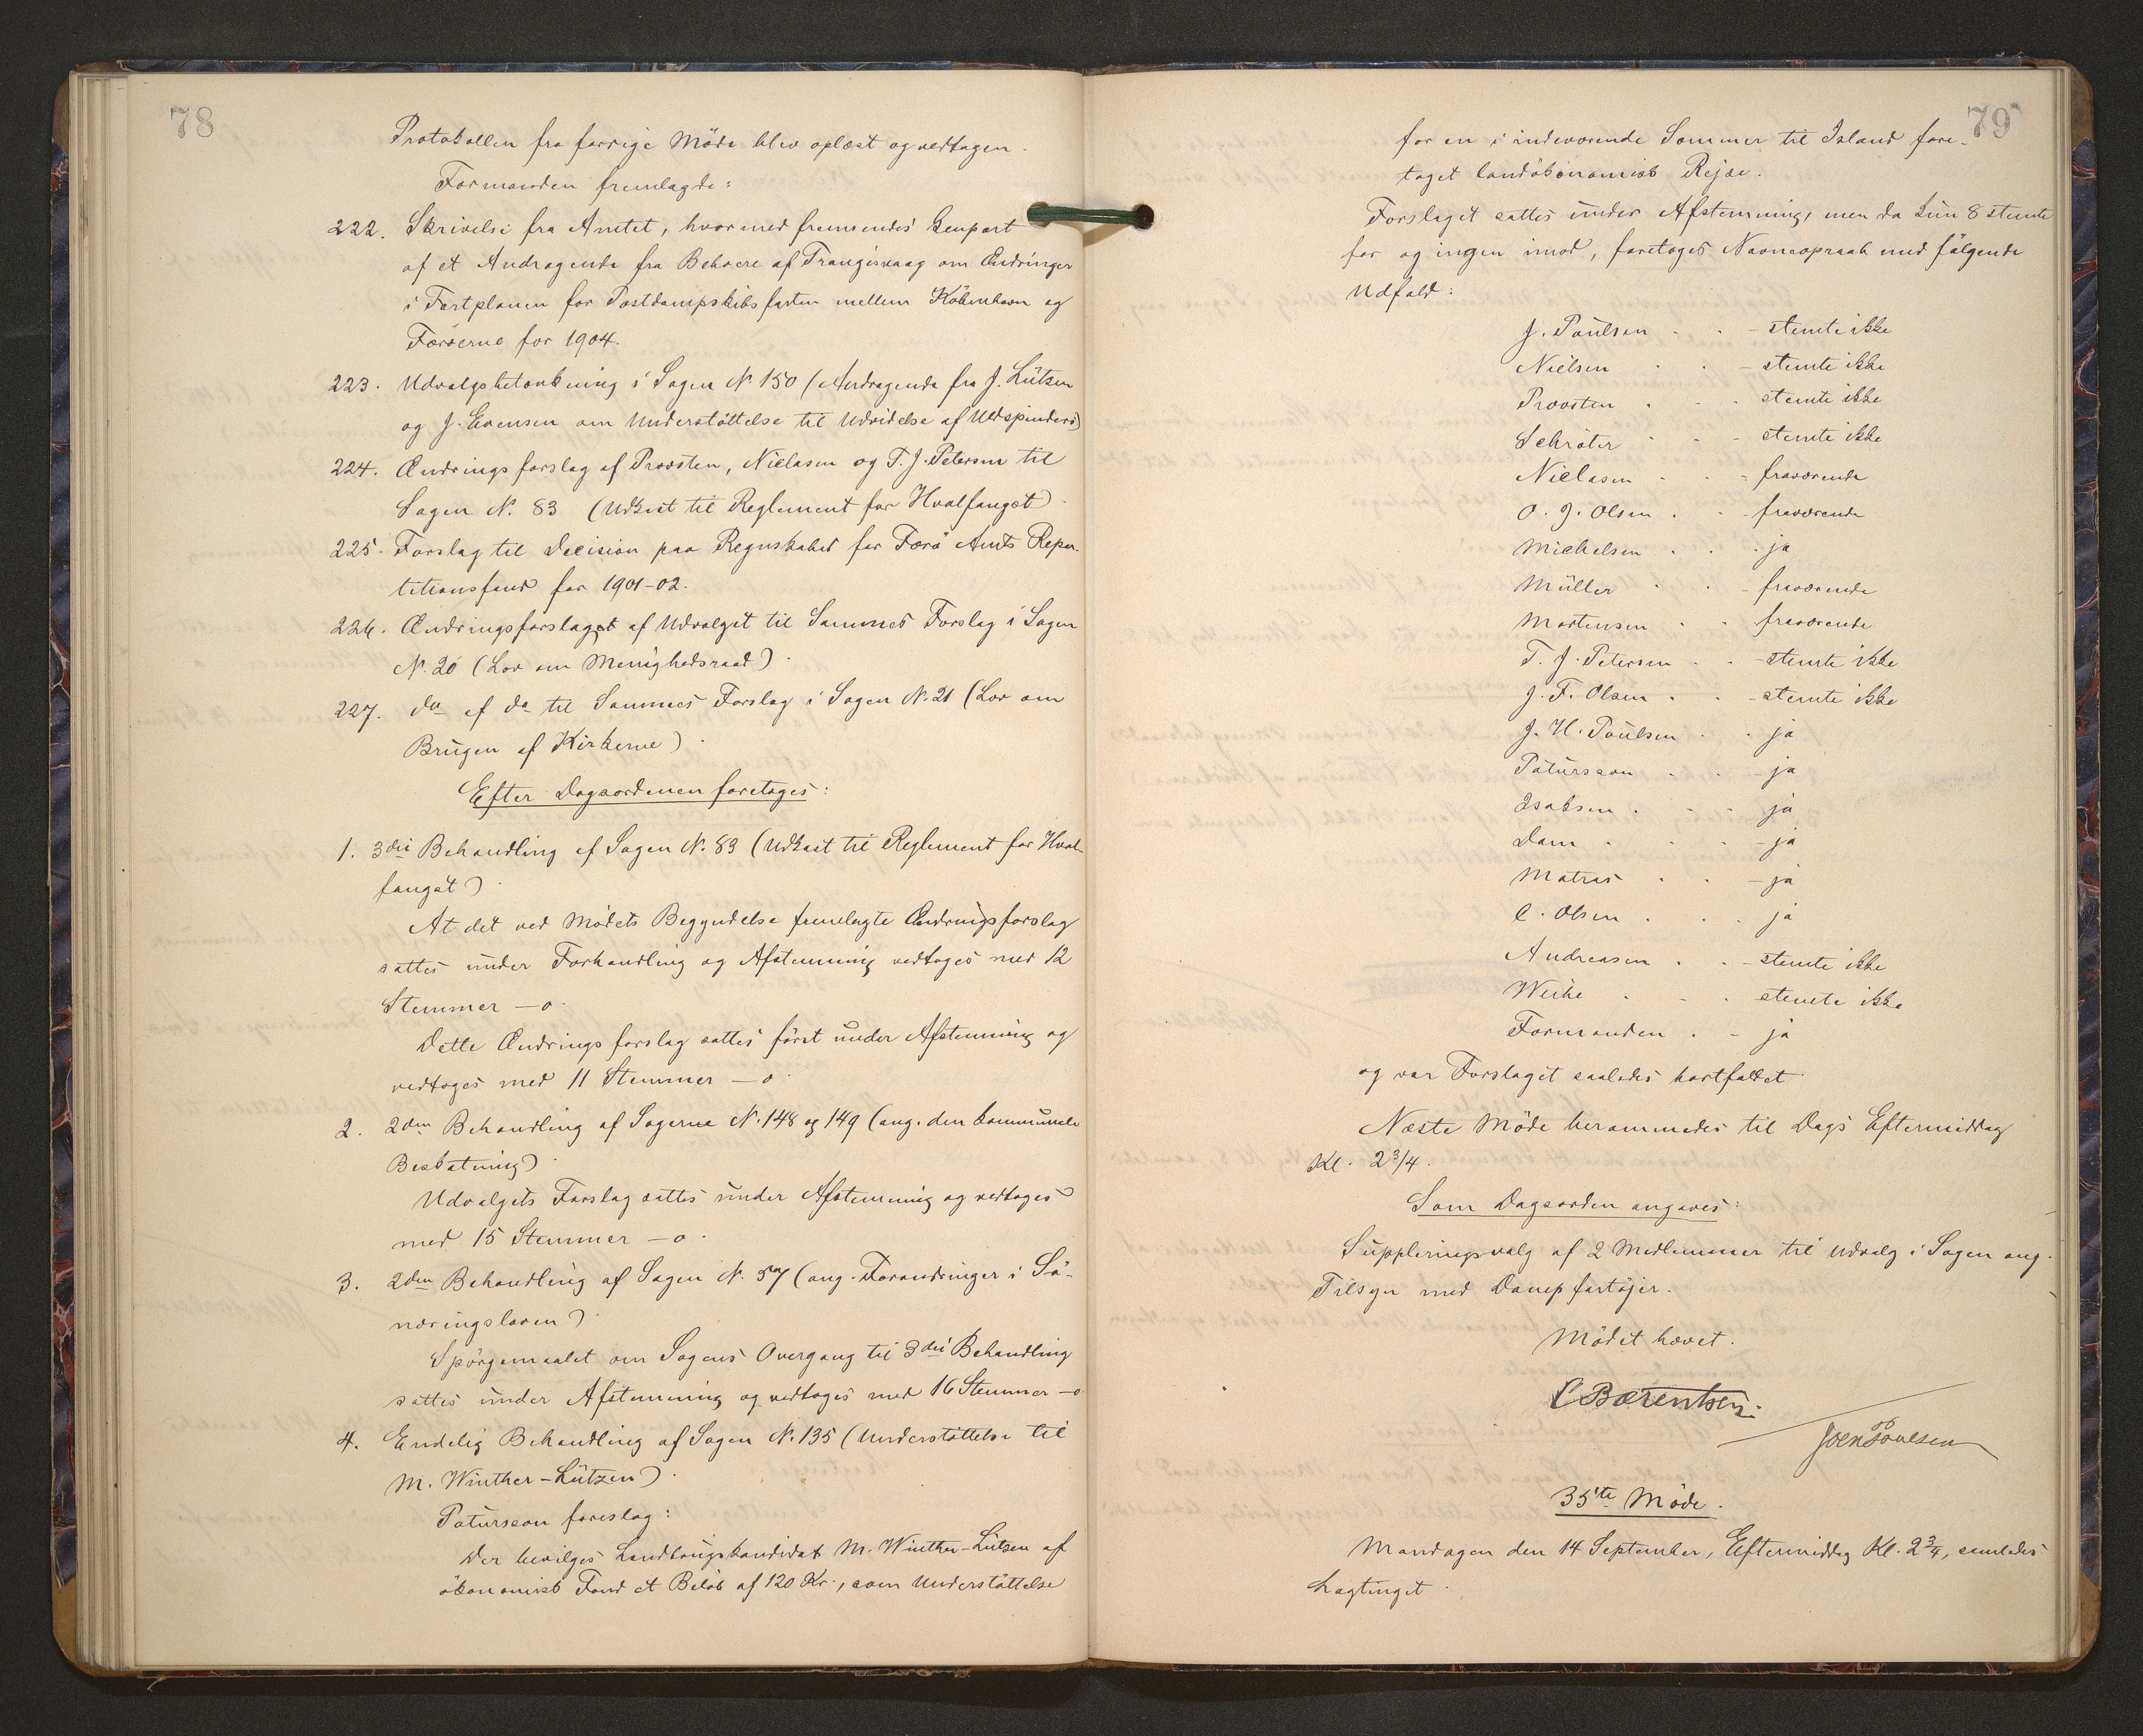 78
Protokollen fra forrige Möde blev oplæst og vedtagen.
Formanden fremlagde:
222. Skrivelse fra Amtet, hvormed fremsendes Genpart
af et Andragende fra Beboere af Trangisvaag om Ændringer
i Fartplanen for Postdampskibsfarten mellem Köbenhavn og
Færöerne for 1904.
223. Udvalgsbetænkning i Sagen N. 150 (Andragende fra J. Lützen
og J. Evensen om Understöttelse til Udvidelse af Uldspinderi)
224. Ændringsforslag af Provsten, Nielasen og T. J. Petersen til
Sagen N. 83 (Udkast til Reglement for Hvalfanget).
225. Forslag til Decision paa Regnskabet for Færö Amts Repar-
titionsfond for 1901-02.
226. Ændringsforslaget af Udvalget til Sammes Forslag i Sagen
N. 20 (Lov om Menighedsraad).
227. do af do til Sammes Forslag i Sagen N. 21 (Lov om
Brugen af Kirkerne).
Efter Dagsordenen foretoges:
1. 3die Behandling af Sagen N. 83 (Udkast til Reglement for Hval-
fanget).
At det ved Mödets Begyndelse fremlagte Ændringsforslag
sættes under Forhandling og Afstemning vedtoges med 12
Stemmer - o.
Dette Ændringsforslag sattes först under Afstemning og
vedtoges med 11 Stemmer - o.
2. 2den Behandling af Sagerne N. 148 og 149 (ang. den kommunale
Beskatning).
Udvalgets Forslag sattes under Afstemning og vedtoges
med 15 Stemmer - o.
3. 2den Behandling af Sagen N. 57 (ang. Forandringer i Sö-
næringsloven).
Spörgsmaalet om Sagens Overgang til 3die Behandling
sattes under Afstemning og vedtoges med 16 Stemmer - o
4. Endelig Behandling af Sagen N. 135 (Understöttelse til
M. Winther-Lützen).
Patursson foreslog:
Der bevilges Landbrugskandidat M. Winther-Lützen af
ökonomisk Fond et Belöb af 120 Kr., som Understöttelse
79
for en i indeværende Sommer til Island fore-
taget landökonomisk Rejse.
Forslaget sattes under Afstemning, men da kun 8 stemte
for og ingen imod, foretoges Navneopraab med fölgende
Udfald:
J. Poulsen . . - stemte ikke
Nielsen . . - stemte ikke
Provsten . . - stemte ikke
Schröter . . - stemte ikke
Nielasen . . - fraværende
O. J. Olsen . . - fraværende
Michelsen . . . ja
Müller . . - fraværende
Mortensen . . fraværende
T. J. Petersen . . - stemte ikke
J. F. Olsen . . - stemte ikke
J. H. Poulsen . . ja
Patursson . . - ja
Isaksen . . . ja
Dam . . . - ja
Matras . . - ja
C. Olsen . . . ja
Andreasen . . - stemte ikke
Weihe . . . stemte ikke
Formanden . - ja
og var Forslaget saaledes bortfaldet.
Næste Möde berammedes til Dags Eftermiddag
Kl. 2 3/4.
Som Dagsorden angaves:
Suppleringsvalg af 2 Medlemmer til Udvalg i Sagen ang.
Tilsyn med Dampfartöjer.
Mödet hævet.
C Bærentsen.
Joen Poulsen
35te Möde.
Mandagen den 14 September, Eftermiddag Kl. 2 3/4, samledes
Lagtinget.